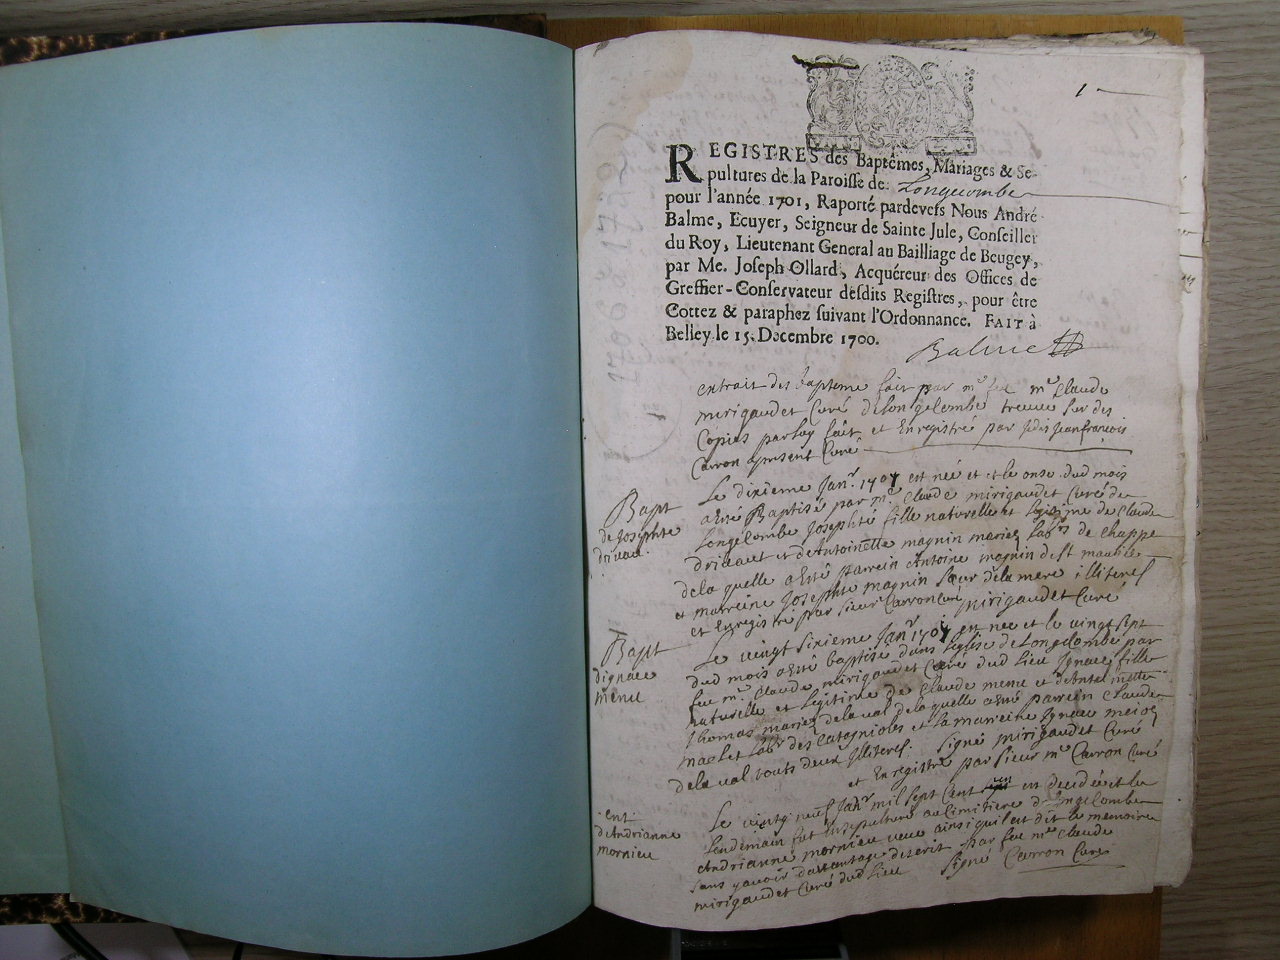 1
REGISTRES des Baptêmes, Mariages & Se-
pultures de la Paroisse de Longecombe
pour l'année 1701, Raporté pardevers Nous André
Balme, Ecuyer, Seigneur de Sainte Jule, Conseiller
du Roy, Lieutenant General au Bailliage de Beugey,
par Me. Joseph Ollard, Acquéreur des Offices de
Greffier-Conservateur desdits Registres, pour être
Cottez & paraphez suivant l'Ordonnance. FAIT à
Belley le 15. Decembre 1700.
Balme
extrait des bapteme fait par mre feu mre Claude
mirigaudet Curé de longelombe treuue sur des
Copies par luy fait et Enregistré par Jean françois
Carron apresent Curé
Bapt
de Josephte
driueau.
Le dixieme Janr. 1701 est née et et le onze dud mois
a esté Baptisé par mre Claude mirigaudet Curé de
Longelombe Josephte fille naturelle et legitime de Claude
driueaut et de Antoinette magnin mariez labrs de Chappe
de la quelle a esté parrein Antoine magnin de st maurice
et marreine Josephte magnin sœur de la mere illiteres
et Enregistré par sieur Carron Curé mirigaudet Curé
Bapt
dignace
menu
Le vingt sixieme Janr 1701 est née et le vingt sept
dud mois a esté baptisé dans leglise de Longelombe par
feu mre Claude mirigaudet Curé dud lieu Ignace fille
naturelle et legitime de Claude meme et de
Thomas mariez de la val de la quelle a esté parrein Claude
labr des Catagnioles et la marreine Ignace
de la val touts deux Illiteres. Signé mirigaudet Curé
et Enregistré par sieur mre Carron Curé
ent
d'Andrianne
mornieu
Le vingt neuf Janr mil sept Cent un est decedée et le
lendemain fut Insepulturé au Cimitiere d Longelombe
Andrianne mornieu veue ainsi quil est dit le memoire
sans y auoir dauantage descrit par feu mre Claude
mirigaudet Curé dud lieu Signé Carron Curé